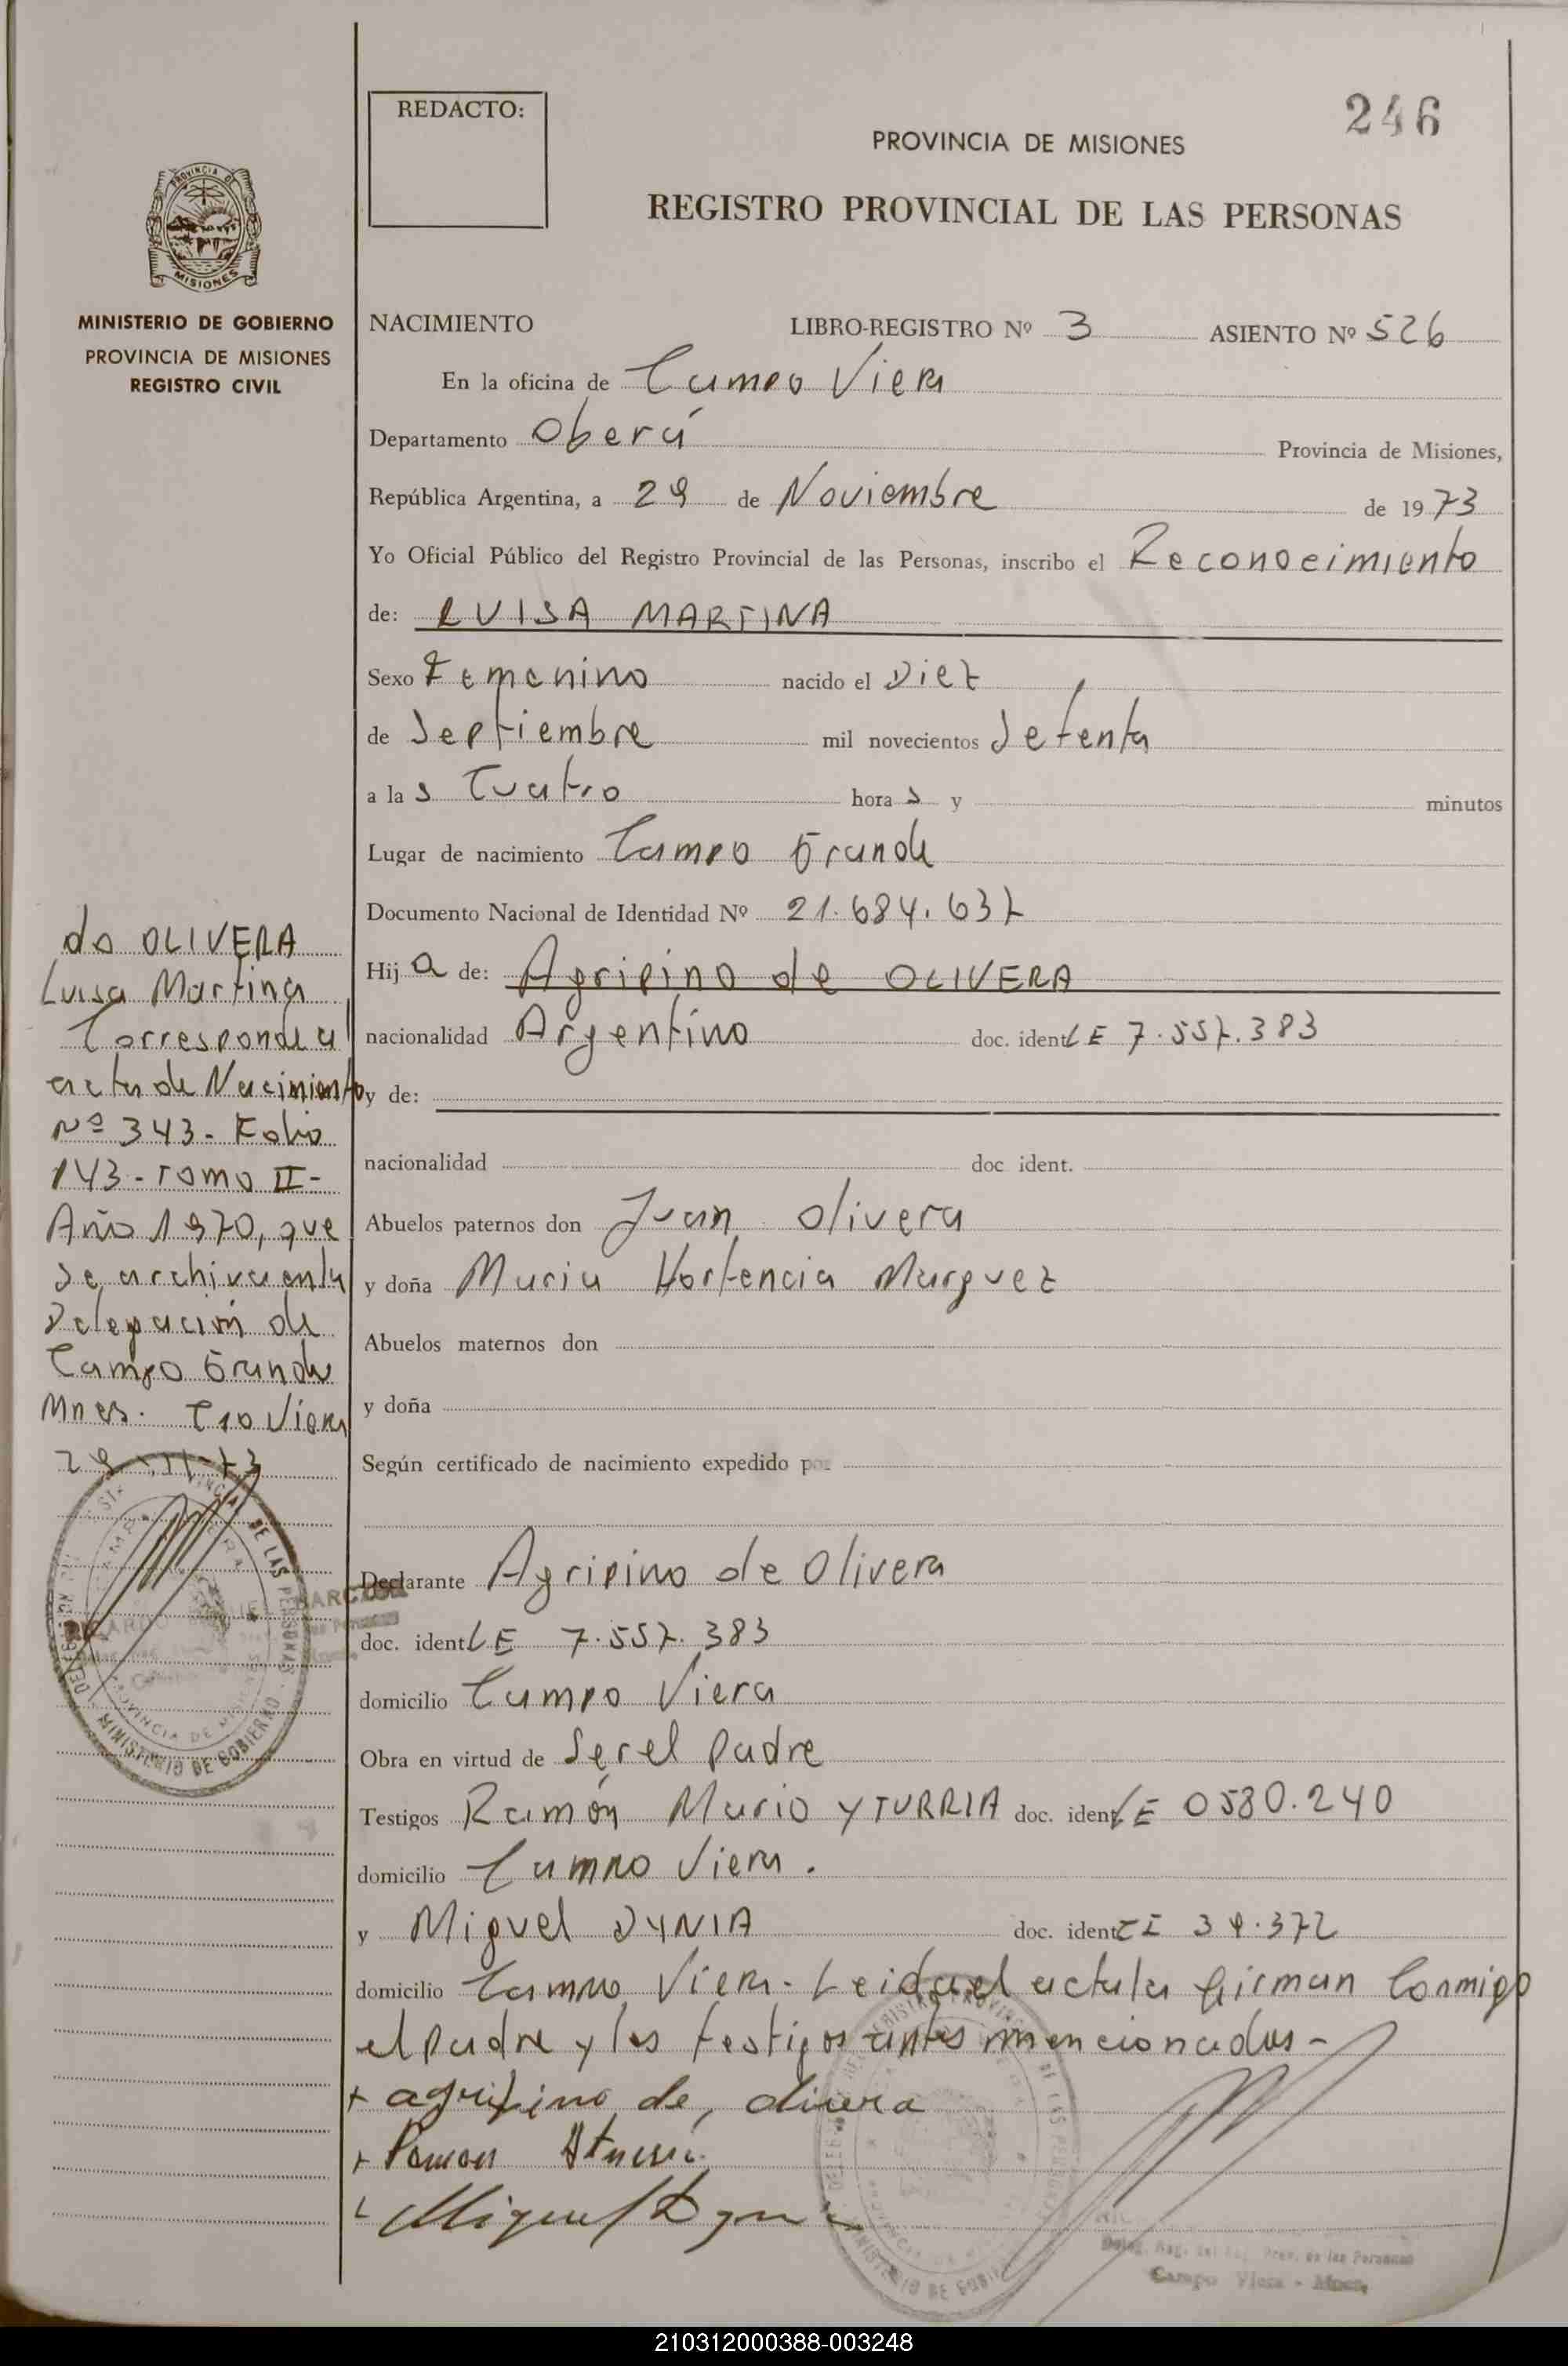 REDACTO:
246
PROVINCIA DE MISIONES
REGISTRO PROVINCIAL DE LAS PERSONAS
MINISTERIO DE GOBIERNO
PROVINCIA DE MISIONES
REGISTRO CIVIL
NACIMIENTO LIBRO-REGISTRO Nº 3 ASIENTO Nº 526
En la oficina de Campo Viera
Departamento Oberá Provincia de Misiones,
República Argentina, a 29 de Noviembre de 1973
Yo Oficial Público del Registro Provincial de las Personas, inscribo el Reconocimiento
de: LUISA MARTINA
Sexo Femenino nacido el Diez
de Septiembre mil novecientos Setenta
a las Cuatro horas y minutos
Lugar de nacimiento Campo Grande
Documento Nacional de Identidad Nº 21.684.637
Hija de: Agripino de OLIVERA
nacionalidad Argentino doc. ident LE 7.557.383
y de:
nacionalidad doc ident.
Abuelos paternos don Juan Olivera
y doña Maria Hortencia Marquez
Abuelos maternos don
y doña
Según certificado de nacimiento expedido por
Declarante Agripino de Olivera
doc. ident LE 7.557.383
domicilio Campo Viera
Obra en virtud de Ser el Padre
Testigos Ramón Mario YTURRIA doc. ident LE 0580.240
domicilio Campo Viera.
y Miguel DYNIA doc. ident CI 39.372
domicilio Campo Viera - Leida el acta la firman Conmigo
el Padre y los testigos antes mencionados -
+ agripino de, olivera
+ Ramon
Miguel Dynia
do OLIVERA
Luisa Martina
Corresponde al
acta de Nacimiento
Nº 343 - Folio
143 - Tomo II -
Año 1970, que
se archiva en la
Delegación de
Campo Grande
Mnes. Cpo Viera
29 - 11 - 73
DE LAS PERSONAS
MINISTERIO DE GOBIERNO
PROVINCIA DE MISIONES
Campo Viera - Mnes.
210312000388-003248